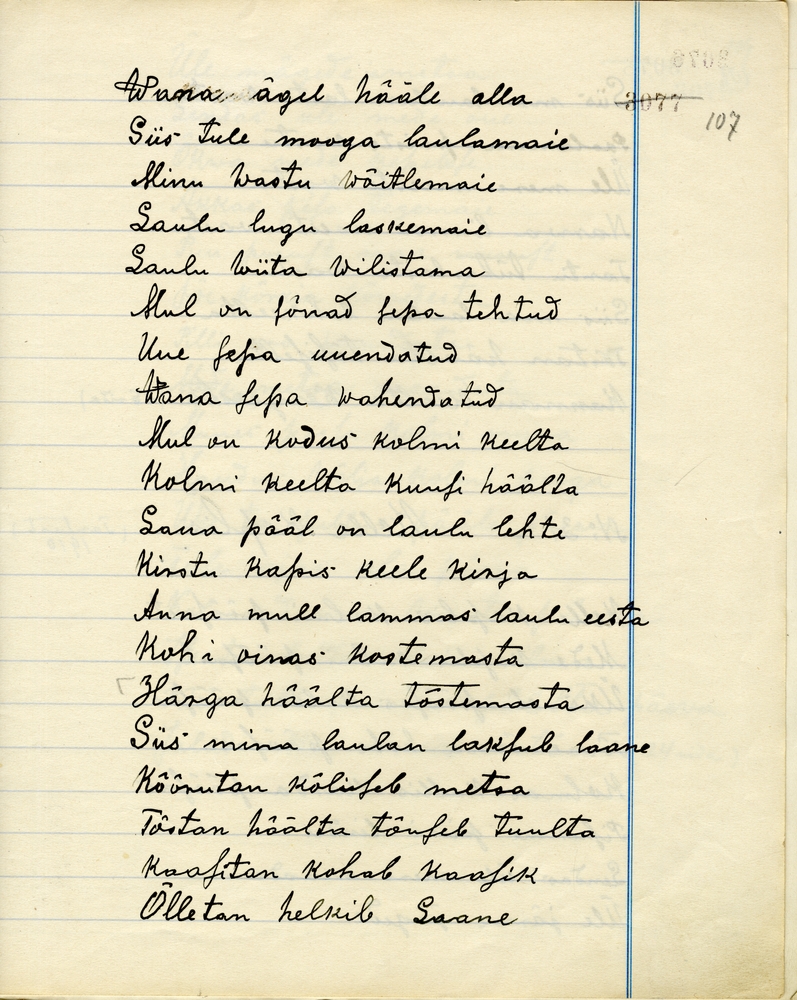 Wana ägel hääle alla
3077
107
Siis tule mooga laulamaie
Minu wastu wõitlemaie
Laulu lugu laskemaie
Laulu wiita wilistama
Mul on sõnad sepa tehtud
Uue sepa uuendatud
Wana sepa wahendatud
Mul on kodus kolmi keelta
Kolmi keelta kuusi häälta
Laua pääl on laulu lehte
Kirstu kapis keele kirja
Anna mull lammas laulu eesta
Kohi oinas kostemasta
Härga häälta tõstemasta
Siis mina laulan laksub laane
Köörutan kõliseb metsa
Tõstan häälta tõuseb tuulta
Kaasitan kohab kaasik
Õlletan helkib Laane